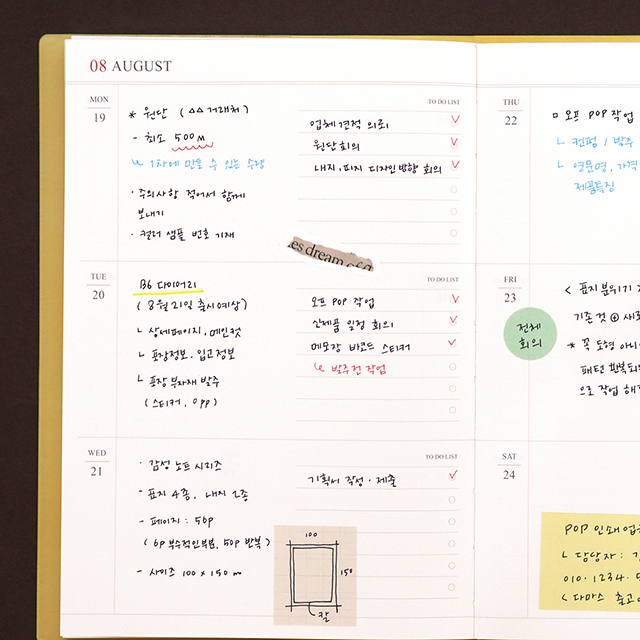 08 AUGUST
MON
19
* 원단 (△△ 거래처)
- 최소 500M
↳ 1차에 만들 수 있는 수량
· 주의사항 적어서 함께
보내기
· 컬러 샘플 번호 기재
TO DO LIST
업체 견적 의뢰
원단 회의
내지, 표지 디자인 방향 회의
es dream of a
TUE
20
B6 다이어리
(8월 21일 출시예상)
↳ 상세페이지, 메인컷
↳ 포장정보, 입고정보
↳ 포장 부자재 발주
(스티커, opp)
TO DO LIST
오프 POP 작업
신제품 일정 회의
메모장 바코드 스티커
↳ 발주전 작업
WED
21
· 감성 노트 시리즈
- 표지 4종, 내지 2종
- 페이지 : 56p
(6p 부수적인부분, 50p 반복)
- 사이즈 100 x 150 m
TO DO LIST
기획서 작성 · 제출
100
150
칼
THU
22
□ 오프 POP 작업
↳ 컨펌 / 발주
↳ 영문명, 가격
제품특징
FRI
23
전체
회의
< 표지 분위기
기존것 ⊕ 새로
* 꼭 도형 아니
패턴 반복되
으로 작업 해
SAT
24
POP 인쇄 업
↳ 담당자 :
010 · 1234 · 5
< 다마스 출고